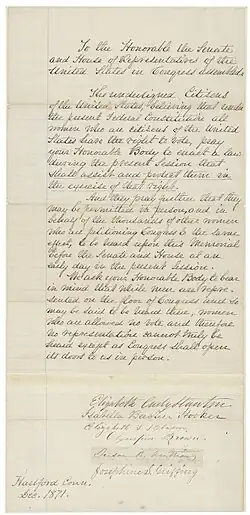 To the Honorable the Senate
and House of Representatives of the
United States in Congress assembled.
The undersigned Citizens
of the United States, believing that under
the present Federal Constitution all
women who are citizens of the United
States have the right to vote, pray
your Honorable Body to enact a law
during the present Session that
shall assist and protect them in
the exercise of that right.
And they pray further that they
may be permitted in person, and in
behalf of the thousands of other women
who are petitioning Congress to the same
effect, to be heard upon this Memorial
before the Senate and House at an
early day in the present session.
We ask your Honorable Body to bear
in mind that while men are repre-
sented on the floor of Congress and so
may be said to be heard there, women
who are allowed no vote and therefore
no representation cannot truly be
heard except as Congress shall open
its doors to us in person.
Elizabeth Cady Stanton
Isabella Beecher Hooker
Elizabeth L. Bladen
Olympia Brown.
Susan B. Anthony
Josephine S. Griffing
Hartford Conn.
Dec. 1871.